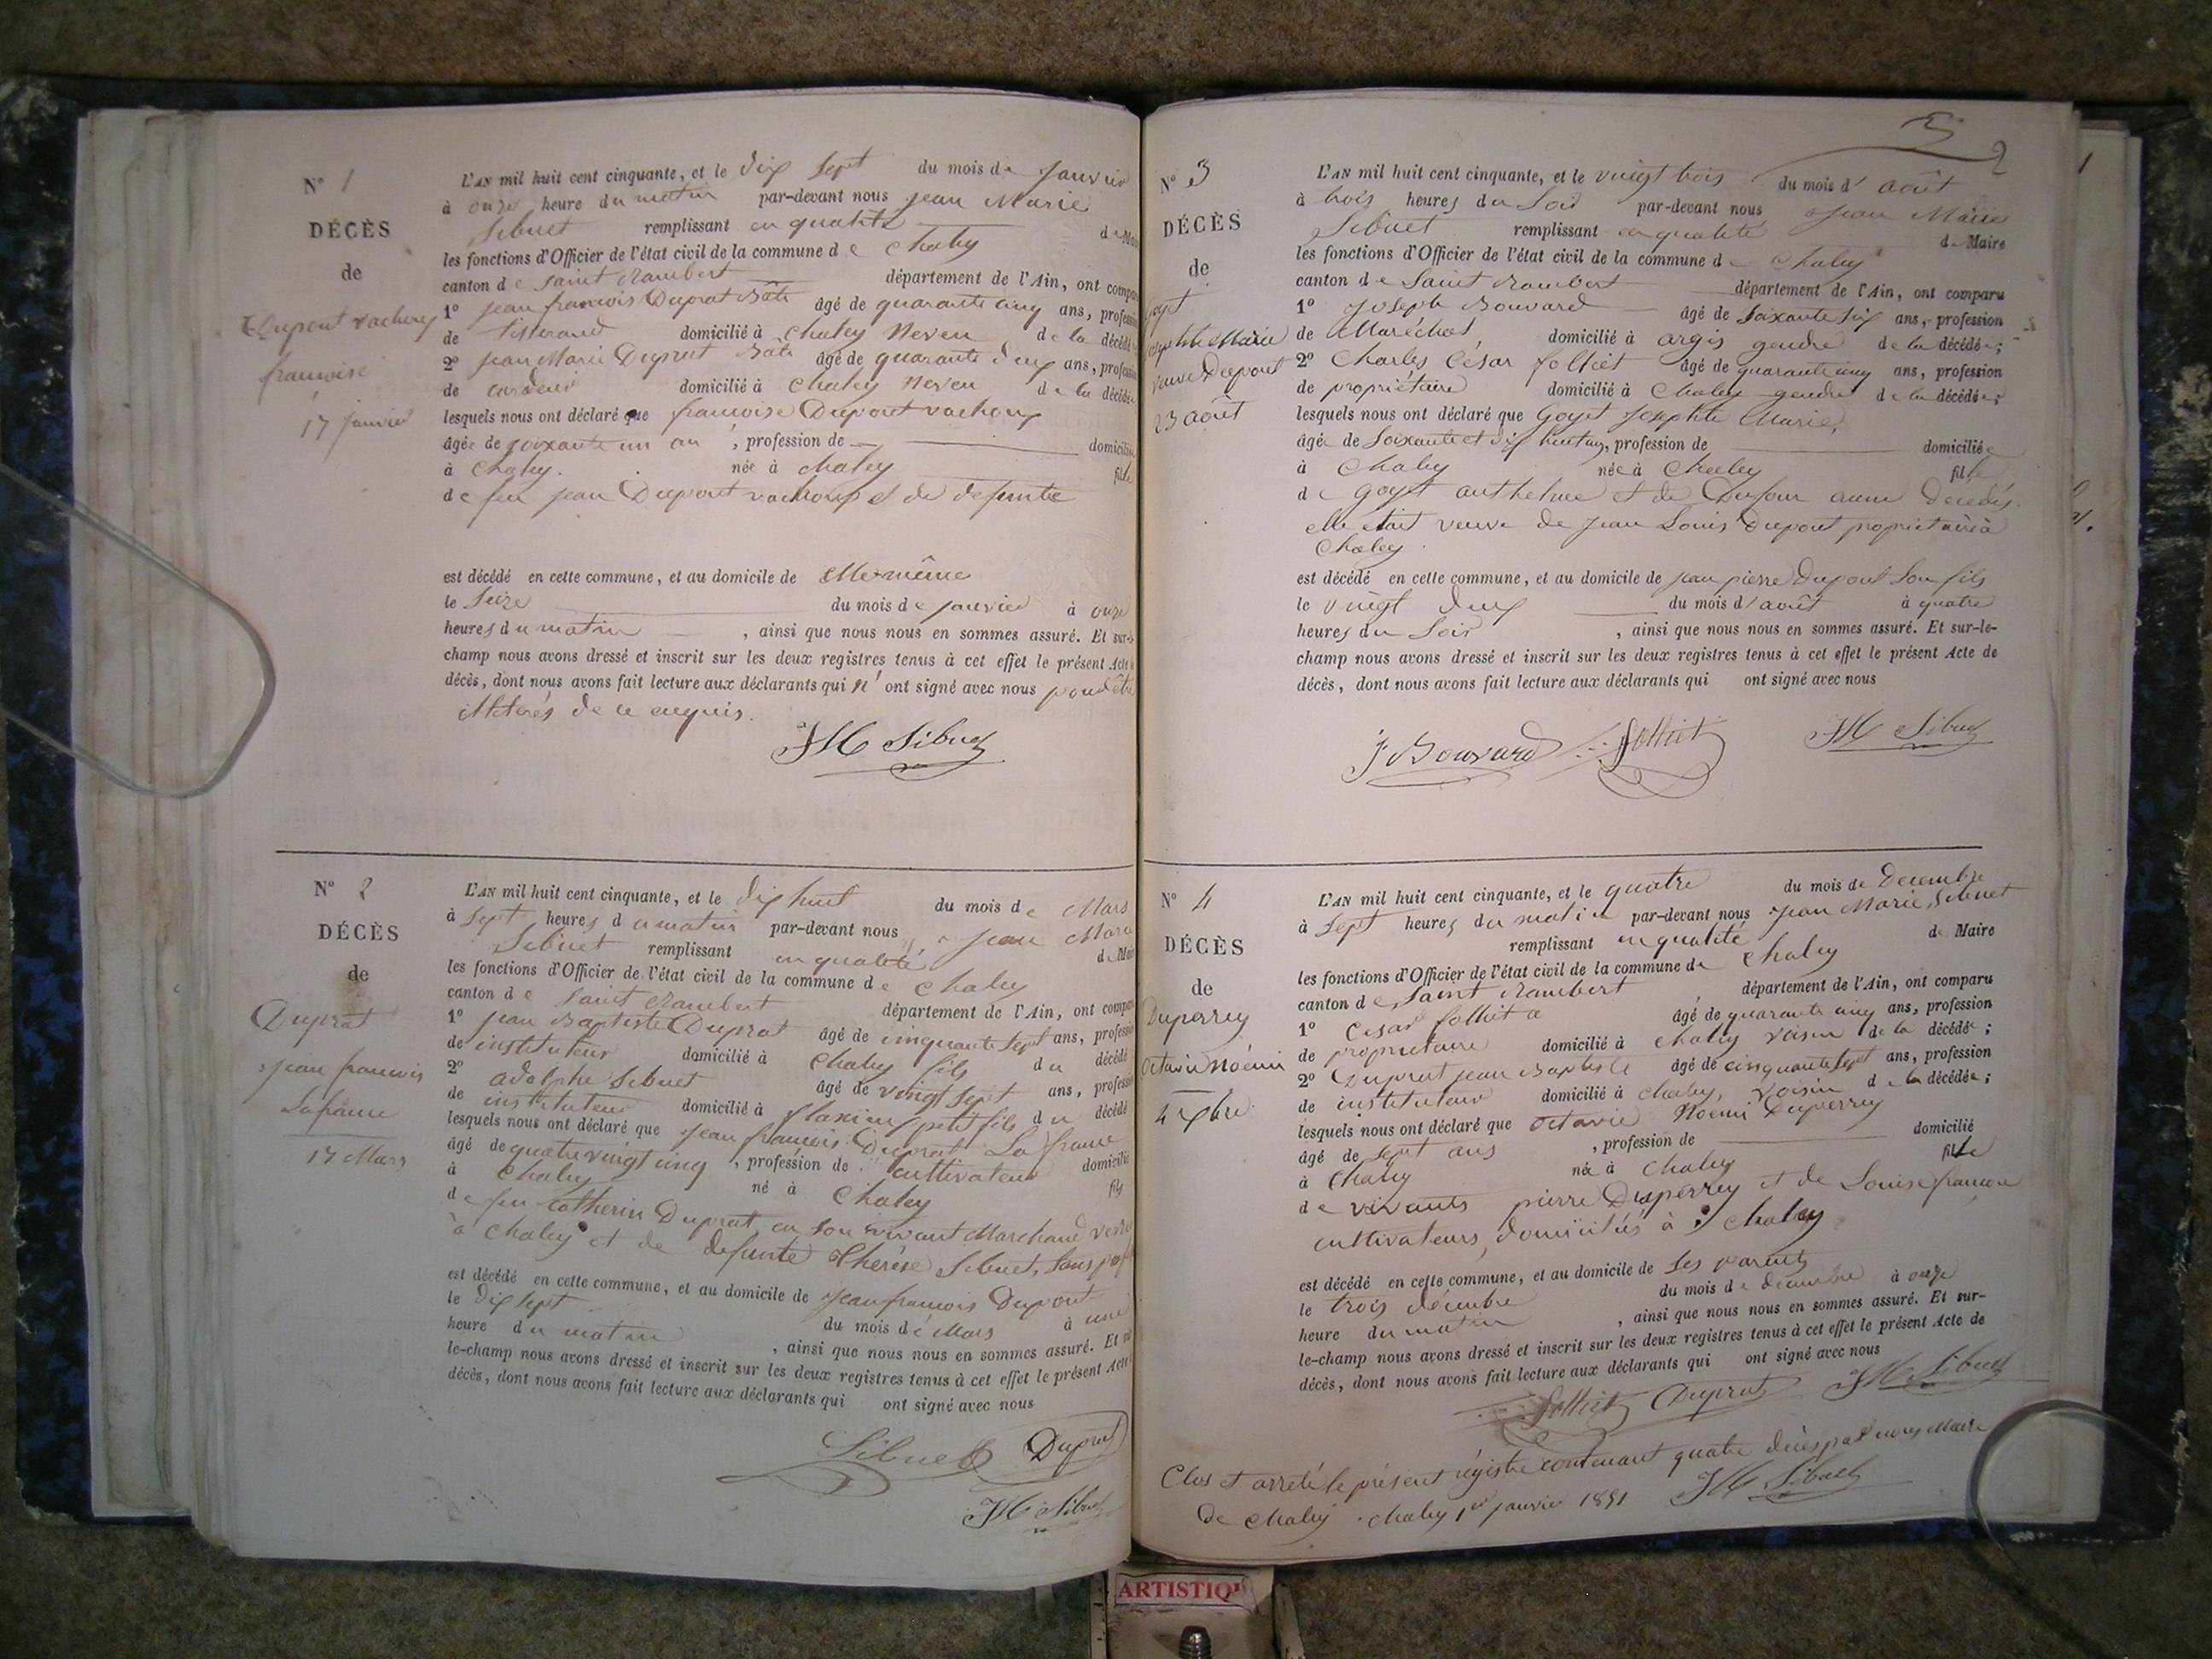 N° 1
DÉCÈS
de
Dupont vachoux
françoise
17 janvier
L'AN mil huit cent cinquante, et le dix sept du mois de janvier
à onze heure du matin par-devant nous jean Marie
Sibuet remplissant en qualité de Maire
les fonctions d'Officier de l'état civil de la commune de Chaley
canton de Saint Rambert département de l'Ain, ont comparu
1° jean françois Duprat Bâti âgé de quarante cinq ans, profession
de tisserand domicilié à Chaley Neveu de la décédée
2° jean Marie Duprat Bâti âgé de quarante deux ans, profession
de cardeur domicilié à Chaley Neveu de la décédée
lesquels nous ont déclaré que françoise Dupont vachoux
âgée de soixante un an , profession de domiciliée
à Chaley née à Chaley fille
de feu jean Dupont vachoux et de defunte
est décédé en cette commune, et au domicile de Elle-même
le Seize du mois de janvier à onze
heures du matin , ainsi que nous nous en sommes assuré. Et sur-le-
champ nous avons dressé et inscrit sur les deux registres tenus à cet effet le présent Acte de
décès, dont nous avons fait lecture aux déclarants qui n'ont signé avec nous pour être
illiterés de ce enquis.
JM Sibuet
N° 2
DÉCÈS
de
Duprat
jean françois
Lafrance
17 Mars
L'AN mil huit cent cinquante, et le dix huit du mois de Mars
à Sept heures du matin par-devant nous jean Marie
Sibuet remplissant en qualité de Maire
les fonctions d'Officier de l'état civil de la commune de Chaley
canton de Saint Rambert département de l'Ain, ont comparu
1° jean Baptiste Duprat âgé de cinquante Sept ans, profession
de instituteur domicilié à Chaley fils du décédé
2° adolphe Sibuet âgé de vingt sept ans, profession
de instituteur domicilié à flaxieu petit fils du décédé
lesquels nous ont déclaré que jean françois Duprat La france
âgé de quatre vingt cinq , profession de cultivateur domicilié
à Chaley né à Chaley fils
de feu Catherin Duprat, en son vivant Marchand
à Chaley et de defunte Thérèse Sibuet, Sans
est décédé en cette commune, et au domicile de jean françois Dupont
le dix sept du mois de Mars à une
heure du matin , ainsi que nous nous en sommes assuré. Et sur-
le-champ nous avons dressé et inscrit sur les deux registres tenus à cet effet le présent Acte
décès, dont nous avons fait lecture aux déclarants qui ont signé avec nous
Sibuet Duprat
JM Sibuet
2
N° 3
DÉCÈS
de
Goyet
josephte Marie
veuve Dupont
23 août
L'AN mil huit cent cinquante, et le vingt trois du mois d'août
à trois heures du Soir par-devant nous Jean Marie
Sibuet remplissant en qualité de Maire
les fonctions d'Officier de l'état civil de la commune de Chaley
canton de Saint Rambert département de l'Ain, ont comparu
1° Joseph Bouvard âgé de Soixante Six ans, profession
de Maréchal domicilié à argis gendre de la décédée;
2° Charles César folliet âgé de quarante cinq ans, profession
de propriétaire domicilié à Chaley gendre de la décédée;
lesquels nous ont déclaré que Goyet Josephte Marie,
âgée de Soixante et dix huit ans, profession de domiciliée
à Chaley née à Chaley fille
de Goyet anthelme et de Dufour anne decedés.
elle était veuve de Jean Louis Dupont proprietaire à
Chaley.
est décédé en cette commune, et au domicile de jean pierre Dupont Son fils
le vingt deux du mois d'août à quatre
heures du Soir , ainsi que nous nous en sommes assuré. Et sur-le-
champ nous avons dressé et inscrit sur les deux registres tenus à cet effet le présent Acte de
décès, dont nous avons fait lecture aux déclarants qui ont signé avec nous
J Bouvard folliet JM Sibuet
N° 4
DÉCÈS
de
Duperrey
octavie Noémi
4 Xbre
L'AN mil huit cent cinquante, et le quatre du mois de Decembre
à Sept heures du matin par-devant nous Jean Marie Sibuet
remplissant en qualité de Maire
les fonctions d'Officier de l'état civil de la commune de Chaley
canton de Saint Rambert , département de l'Ain, ont comparu
1° Cesar folliet âgé de quarante cinq ans, profession
de proprietaire domicilié à Chaley voisin de la décédée;
2° Duprat jean Baptiste âgé de cinquante Sept ans, profession
de instituteur domicilié à Chaley, voisin de la décédée;
lesquels nous ont déclaré que octavie Noemi Duperrey
âgé de Sept ans , profession de domicilié
à Chaley née à Chaley fille
de vivants pierre Duperrey et de Louise françon
cultivateurs, domiciliés à Chaley
est décédé en cette commune, et au domicile de Ses parents
le trois décembre du mois de décembre à onze
heure du matin , ainsi que nous nous en sommes assuré. Et sur-
le-champ nous avons dressé et inscrit sur les deux registres tenus à cet effet le présent Acte de
décès, dont nous avons fait lecture aux déclarants qui ont signé avec nous
folliet Duprat JM Sibuet
Clos et arreté le présent régistre contenant quatre décès par nous Maire
de Chaley. Chaley 1er janvier 1851 JM Sibuet
ARTISTIQ